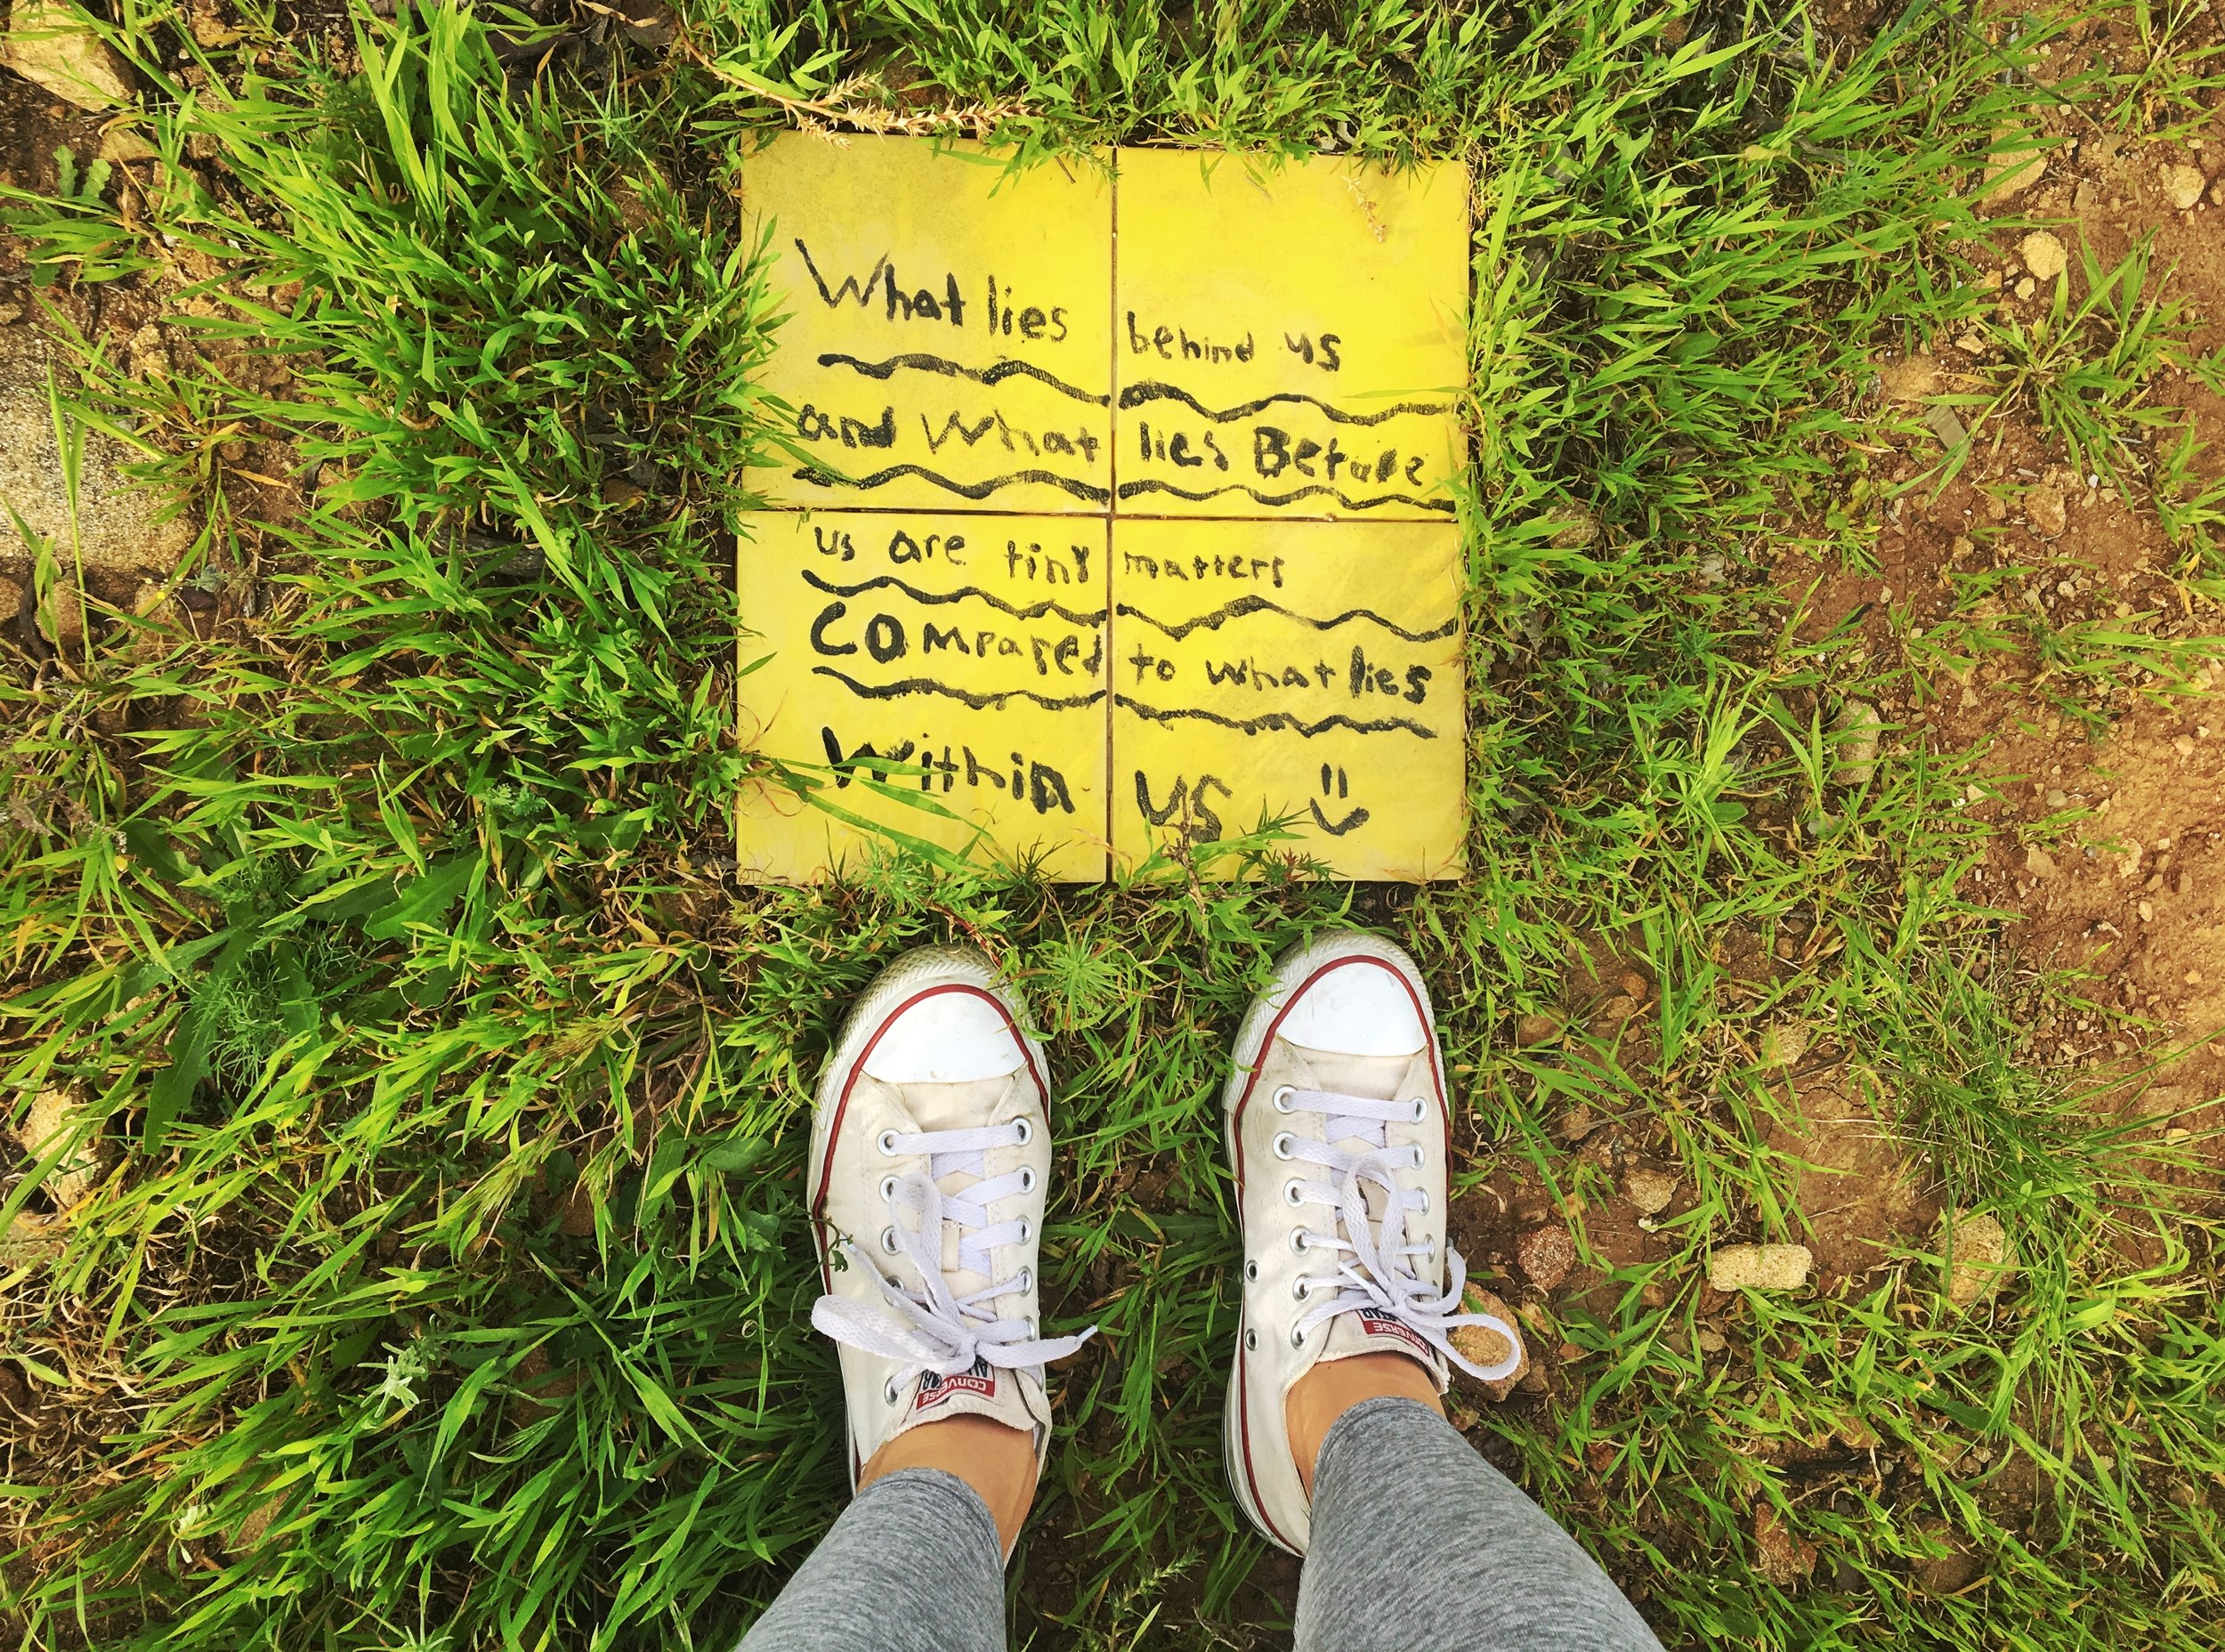 What lies behind us
and What lies Before
us are tiny matters
COmpared to what lies
Within US
CONVERSE
CONVERSE